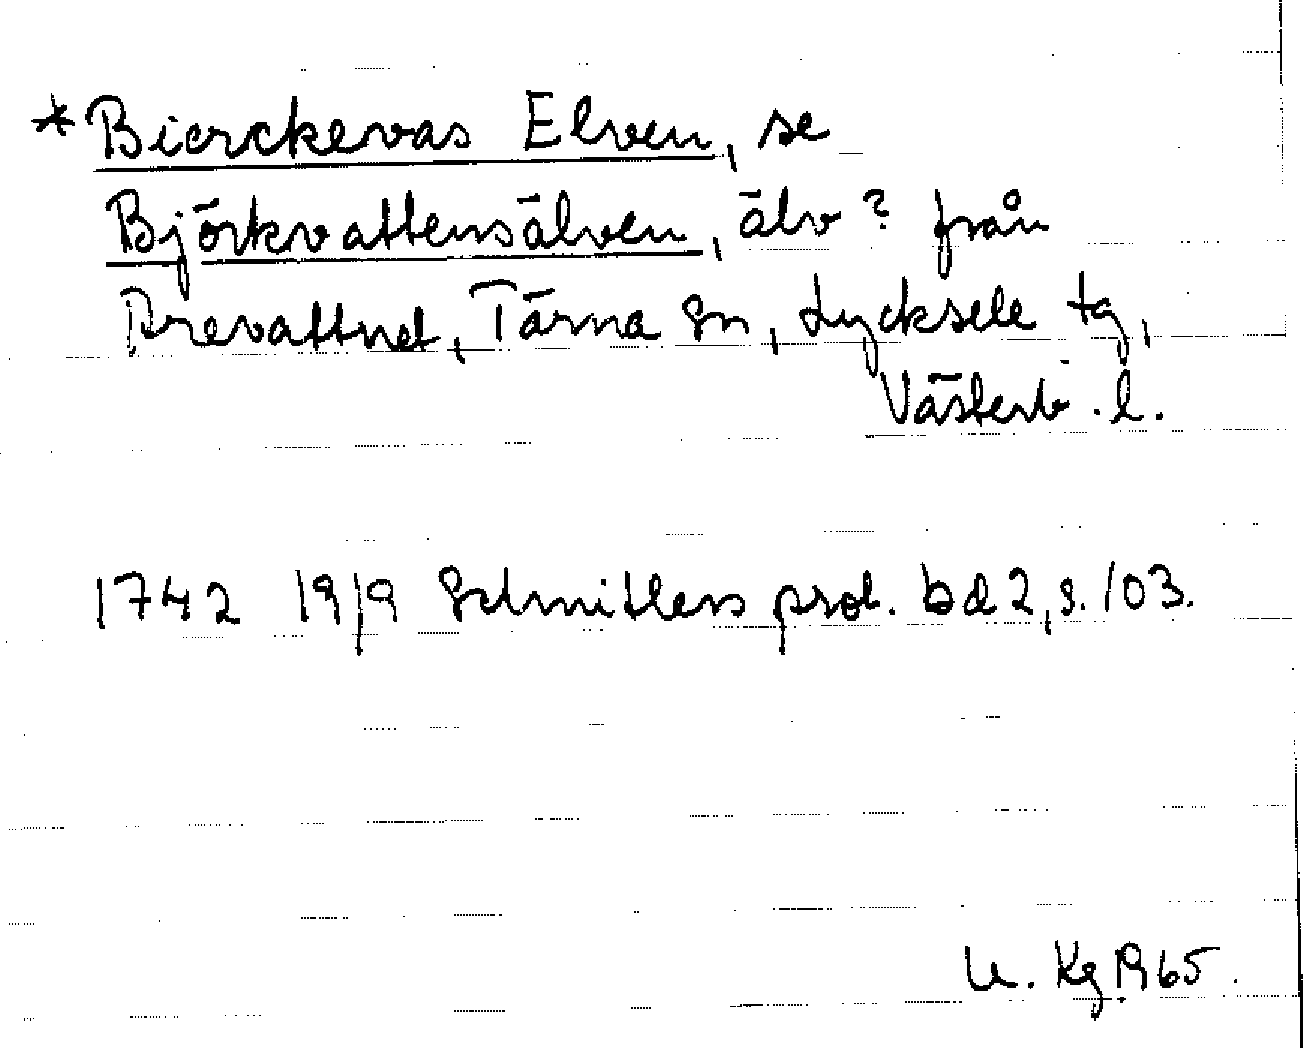 *Bierckevas Elven, se
Björkvattensälven, älv? från
Arevattnet, Tärna sn, Lycksele tg,
Västerb. l.
1742 19/9 Schnitlers prot. bd 2, s. 103.
U. Kg 1965.